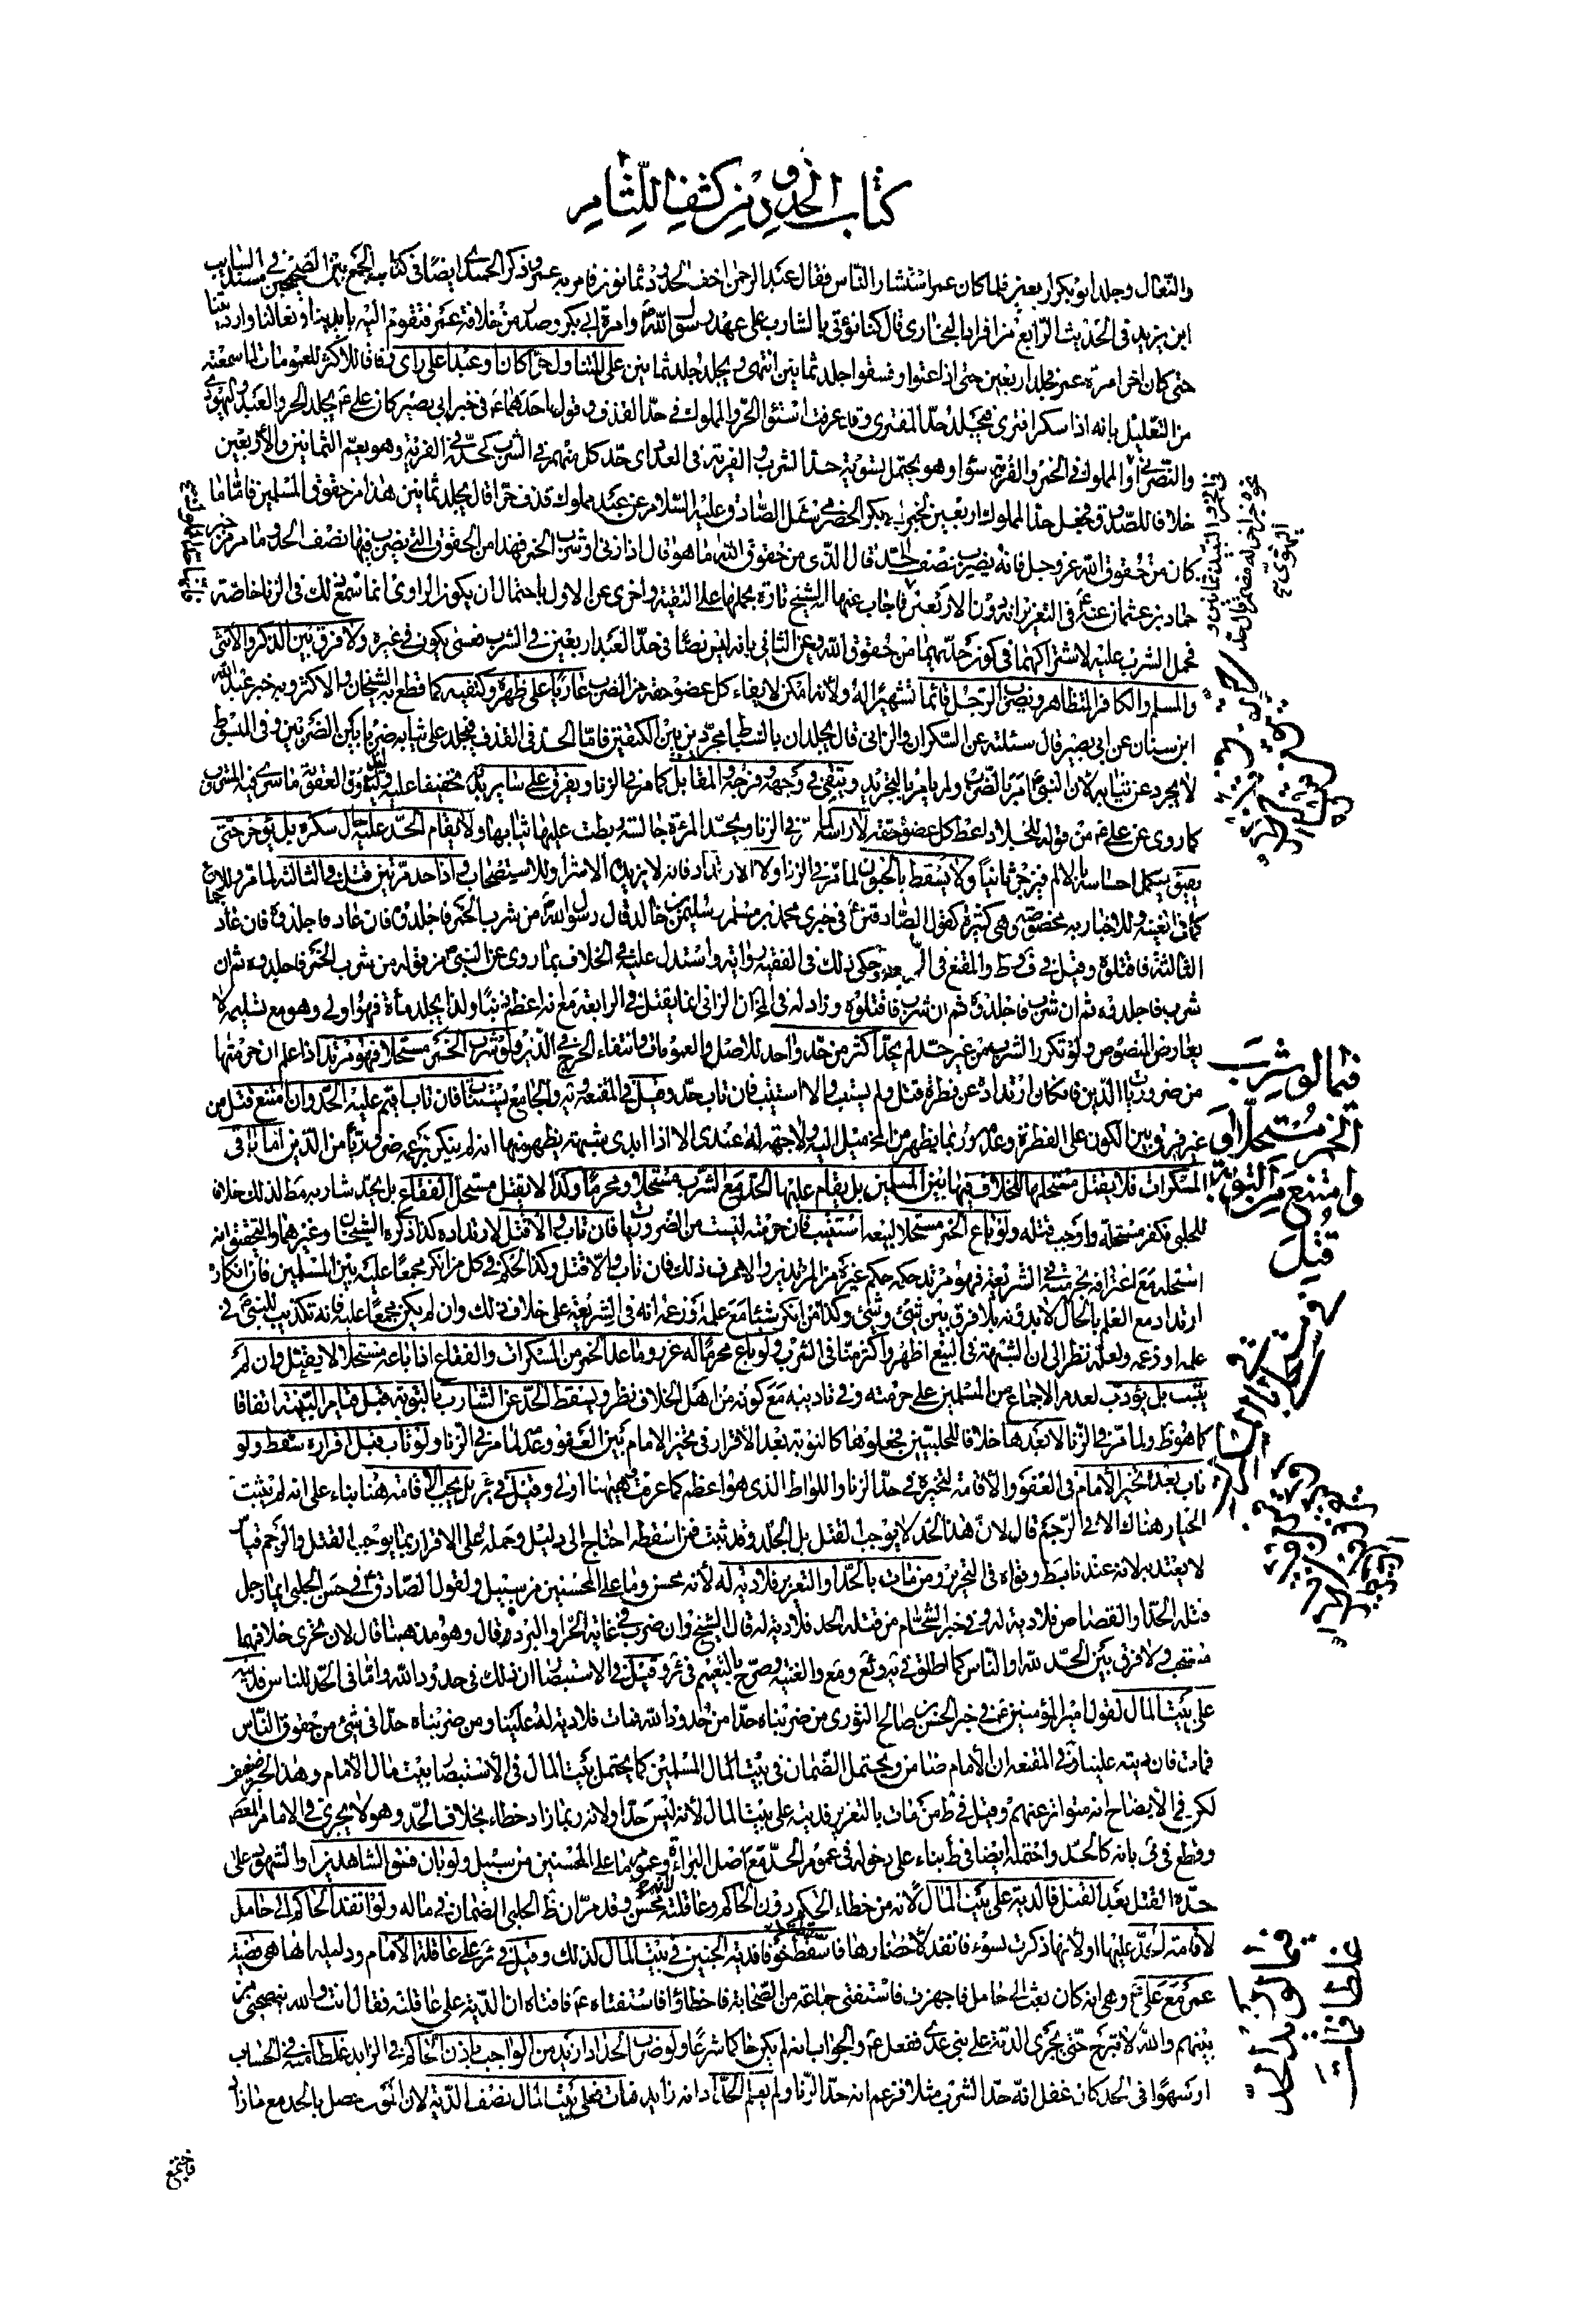 كتاب الحدود من كشف اللثام
والنعال وجلد ابو بكر اربعين فلما كان عمر استشار الناس فقال عبد الرحمن اخف الحدود ثمانون فامر به عمر وذكر الحميدي ايضا في كتاب الجمع بين الصحيحين في مسند السايب
ابن يزيد في الحديث الرابع من افراد البخاري قال كنا نؤتى بالشارب على عهد رسول الله ص وامرة ابي بكر وصدر من خلافة عمر فنقوم اليه بايدينا ونعالنا وارديتنا
حتى كان اخر امرة عمر فجلد اربعين حتى اذا عتوا وفسقوا جلد ثمانين انتهى ويجلد جلد ثمانين على المتناول حرا كان او عبدا على راي وفاقا للاكثر للعمومات لما سمعته
من التعليل بانه اذا سكر افترى فيجلد حد المفتري وقد عرفت استواء الحر والمملوك في حد القذف وقول احدهما ع في خبر ابي بصير كان علي ع يجلد الحر والعبد واليهودي
والنصراني والمملوك في الخمر والفرية سواء وهو يحتمل تسوية حد الشرب والفرية في العدد اي حد كل منهم في الشرب كحده في الفرية وهو يعم الثمانين والاربعين
خلافا للصدوق فجعل حد المملوك اربعين لخبر ابي بكر الحضرمي سئل الصادق عليه السلام عن عبد مملوك قذف حرا قال يجلد ثمانين هذا من حقوق المسلمين فاما ما
كان من حقوق الله عز وجل فانه يضرب نصف الحد قال الذي من حقوق الله ما هو قال اذا زنى او شرب الخمر فهذا من الحقوق التي يضرب فيها نصف الحد وما مر من خبر
حماد بن عثمان عنه ع في التعزير انه دون الاربعين فاجاب عنها الشيخ تارة بحملها على التقية واخرى عن الاول باحتمال ان يكون الراوي انما سمع ذلك في الزنا خاصة
فحمل الشرب عليه لاشتراكهما في كون حديهما من حقوق الله وعن الثاني بانه ليس نصا في حد العبد اربعين في الشرب فعسى يكون في غيره ولا فرق بين الذكر والانثى
والمسلم والكافر المتظاهر ويضرب الرجل قائما تشهيرا له ولانه امكن لايفاء كل عضو حقه من الضرب عاريا على ظهره وكتفيه كما قطع به الشيخان والاكثر وبه خبر عبد الله
ابن سنان عن ابي بصير قال سئلته عن السكران والزاني قال يجلدان بالسياط مجردين بين الكتفين فاما الحد في القذف فيجلد على ثيابه ضربا بين الضربين وفي المبسوط
لا يجرد عن ثيابه لان النبي ص امر بالضرب ولم يامر بالتجريد ويتقي وجهه وفرجه والمقاتل كما مر في الزنا ويفرق على ساير بدنه تخفيفا عليه وليذوق العقوبة ما سرى فيه المشروب
كما روى عن علي ع من قوله للجلاد اعط كل عضو حقه لا راسا لما مر في الزنا ويحد المراة جالسة ربطت عليها ثيابها ولا يقام الحد عليه حال سكره بل يؤخر حتى
يفيق ليكمل احساسه بالالم فينزجر ثانيا ولا يسقط بالجنون لما مر في الزنا ولا الارتداد فانه لا يزيد الا شرا وللاستصحاب واذا حد مرتين قتل في الثالثة لما مر وللاجماع
كما في الغنية وللاخبار به بخصوصه وهي كثيرة كقول الصادقين ع في خبري محمد بن مسلم وسليمن بن خالد قال رسول الله ص من شرب الخمر فاجلدوه فان عاد فاجلدوه فان عاد
الثالثة فاقتلوه وقيل في ف وط والمقنع في الرابعة وحكى ذلك في الفقيه رواية واستدل عليه في الخلاف بما روى عن النبي ص من قوله من شرب الخمر فاجلدوه ثم ان
شرب فاجلدوه ثم ان شرب فاجلدوه ثم ان شرب فاقتلوه وزاد له في المخ ان الزاني انما يقتل في الرابعة مع انه اعظم ذنبا ولذا يجلد مأة فهو اولى وهو مع تسليمه لا
يعارض النصوص ولو تكرر الشرب من غير حد لم يحد اكثر من حد واحد للاصل والعمومات وانتفاء الحرج في الدين ولو شرب الخمر مستحلا فهو مرتد اذا علم ان حرمتها
من ضروريات الدين فان كان ارتداده عن فطرة قتل ولم يستتب والا استتيب فان تاب حد وقيل في المقنعة وية والجامع يستتاب فان تاب اقيم عليه الحد وان امتنع قتل من
غير فرق بين الكون على الفطرة وعدمه وربما يظهر من المخ الميل اليه ولا جهة له عندي الا اذا ابدى شبهة يظهر منها انه لم يكن بزعمه ضروريا من الدين اما باقي
المسكرات فلا يقتل مستحلها للخلاف فيها بين المسلمين بل يقام عليها الحد مع الشرب مستحلا ومحرما وكذا لا يقتل مستحل الفقاع بل يحد شاربه مط لذلك خلاف
للحلبي فكفر مستحله واوجب قتله ولو باع الخمر مستحلا لبيعه استتيب فان حرمته ليست من الضروريات فان تاب والا قتل لارتداده كذا ذكره الشيخان وغيرهما والتحقيق انه
استحله مع اعترافه بحرمته في الشريعة فهو مرتد حكمه حكم غيره من المرتدين والا عرف ذلك فان تاب والا قتل وكذا الحكم في كل من انكر مجمعا عليه بين المسلمين فان انكاره
ارتداد مع العلم بالحال لا بدونه بلا فرق بين شيء وشيء وكذا من انكر شيئا مع علمه او زعمه انه في الشريعة على خلاف ذلك وان لم يكن مجمعا عليه فانه تكذيب للنبي ص في
علمه او زعمه ولعله نظر الى ان الشبهة في البيع اظهر واكثر منها في الشرب ولو باع محرما له عزر وما عدا الخمر من المسكرات والفقاع اذا باعه مستحلا لا يقتل وان لم
يتب بل يؤدب لعدم الاجماع من المسلمين على حرمته وفي تاديبه مع كونه من اهل الخلاف نظر ويسقط الحد عن الشارب بالتوبة قبل قيام البينة اتفاقا
كما هو ظ ولما مر في الزنا لا بعدها خلافا للحلبيين فجعلوها كالتوبة بعد الاقرار في تخيير الامام بين العفو وعدمه لما مر في الزنا ولو تاب قبل اقراره سقط ولو
تاب بعده تخير الامام في العفو والاقامة لتخيره في حد الزنا واللواط الذي هو اعظم كما عرفت فههنا اولى وقيل في ئر بل يجب الاقامة هنا بناء على انه لم يثبت
الخيار هناك الا في الرجم قال لان هذا الحد لا يوجب القتل بل الجلد وقد ثبت فمن اسقطه احتاج الى دليل وحمله على الاقرار بما يوجب القتل والرجم قياس
لا يعتد به لانه عندنا بط وقواه في التحرير ومن مات بالحد او التعزير فلا دية له لانه محسن وما على المحسنين من سبيل ولقول الصادق ع في حسن الحلبي ايما رجل
قتله الحد او القصاص فلا دية له وفي خبر الشحام من قتله الحد فلا دية له قال الشيخ وان ضرب في غاية الحر او البرد قال وهو مذهبنا قال لان تحري خلافهما
مستحب ولا فرق بين الحد لله او الناس كما اطلق في ية وئع ومع والغنية وصرح بالتعميم في ئر وقيل في الاستبصار ان ذلك في حدود الله واما في الحد للناس فديته
على بيت المال لقول امير المؤمنين ع في خبر الحسن بن صالح الثوري من ضربناه حدا من حدود الله فمات فلا دية له علينا ومن ضربناه حدا في شيء من حقوق الناس
فمات فان ديته علينا وفي المقنعة ان الامام ضامن ويحتمل الضمان في بيت المال المسلمين كما يحتمل بيت المال في الاستبصار بيت مال الامام وهذا الخبر ضعيف
لكن في الايضاح انه متواتر عنهم وقيل في ط من مات بالتعزير فديته على بيت المال لانه ليس حدا ولانه ربما زاد خطاء بخلاف الحد وهو لا يجري في الامام المعصوم
وقطع في ف بانه كالحد واحتمله ايضا في ط بناء على دخوله في عموم الحد مع اصل البراءة وعموم ما على المحسنين من سبيل ولو بان فسق الشاهدين او الشهود على
حده القتل بعد القتل فالدية على بيت المال لانه من خطاء الحاكم دون الحاكم وعاقلته لانه محسن وقد مر ان ظ الحلبي الضمان في ماله ولو انفذ الحاكم الى حامل
لاقامة الحد عليها او لانها ذكرت بسوء فانفذ لاحضارها فاسقطت خوفا فدية الجنين في بيت المال لذلك وقيل في ئر على عاقلة الامام ودليله انها هي قضية
عمر مع علي ع وهي انه كان بعث الى حامل فاجهزت فاستفتى جماعة من الصحابة فاخطاؤا فاستفتاه ع فافتاه ان الدية على عاقلته فقال انت والله نصحتني من
بينهم والله لا تبرح حتى تجري الدية على بني عدي ففعل ع والجواب انه لم يكن حاكما شرعا ولو ضرب الحداد ازيد من الواجب باذن الحاكم في الزايد غلطا منه في الحساب
او سهوا في الحد كان غفل انه حد الشرب مثلا فزعم انه حد الزنا ولم يعلم الحداد انه زايد فمات فعلى بيت المال نصف الدية لان الموت حصل بالحد مع ما زاد
فاجتمع
فيما لو شرب
الخمر مستحلا او
وامتنع من التوبة
قتل
فيما لو زيد الحد
غلطا فمات